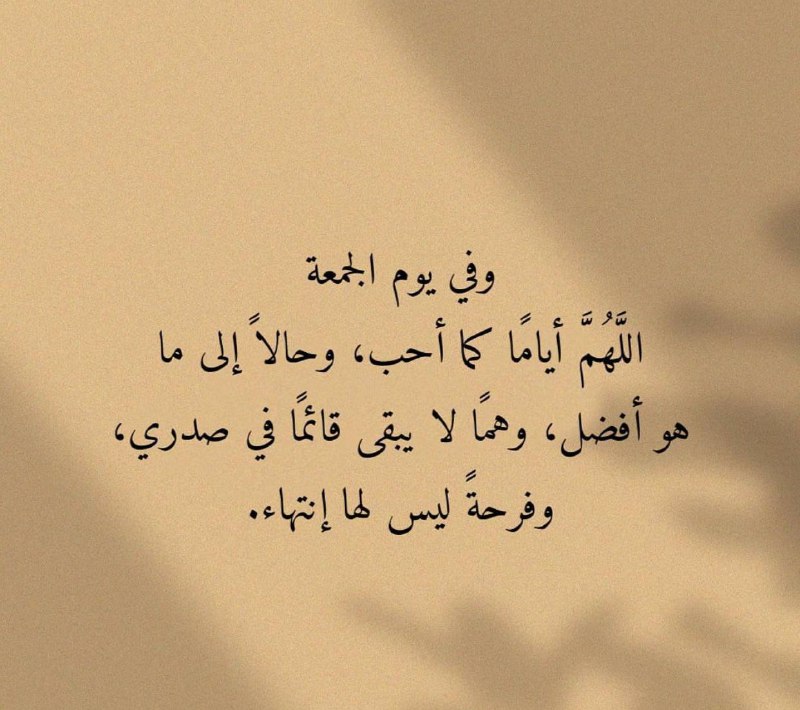 وفي يوم الجمعة
اللَّهُمَّ أيامًا كما أحب، وحالاً إلى ما
هو أفضل، وهمًا لا يبقى قائمًا في صدري،
وفرحةً ليس لها إنتهاء.